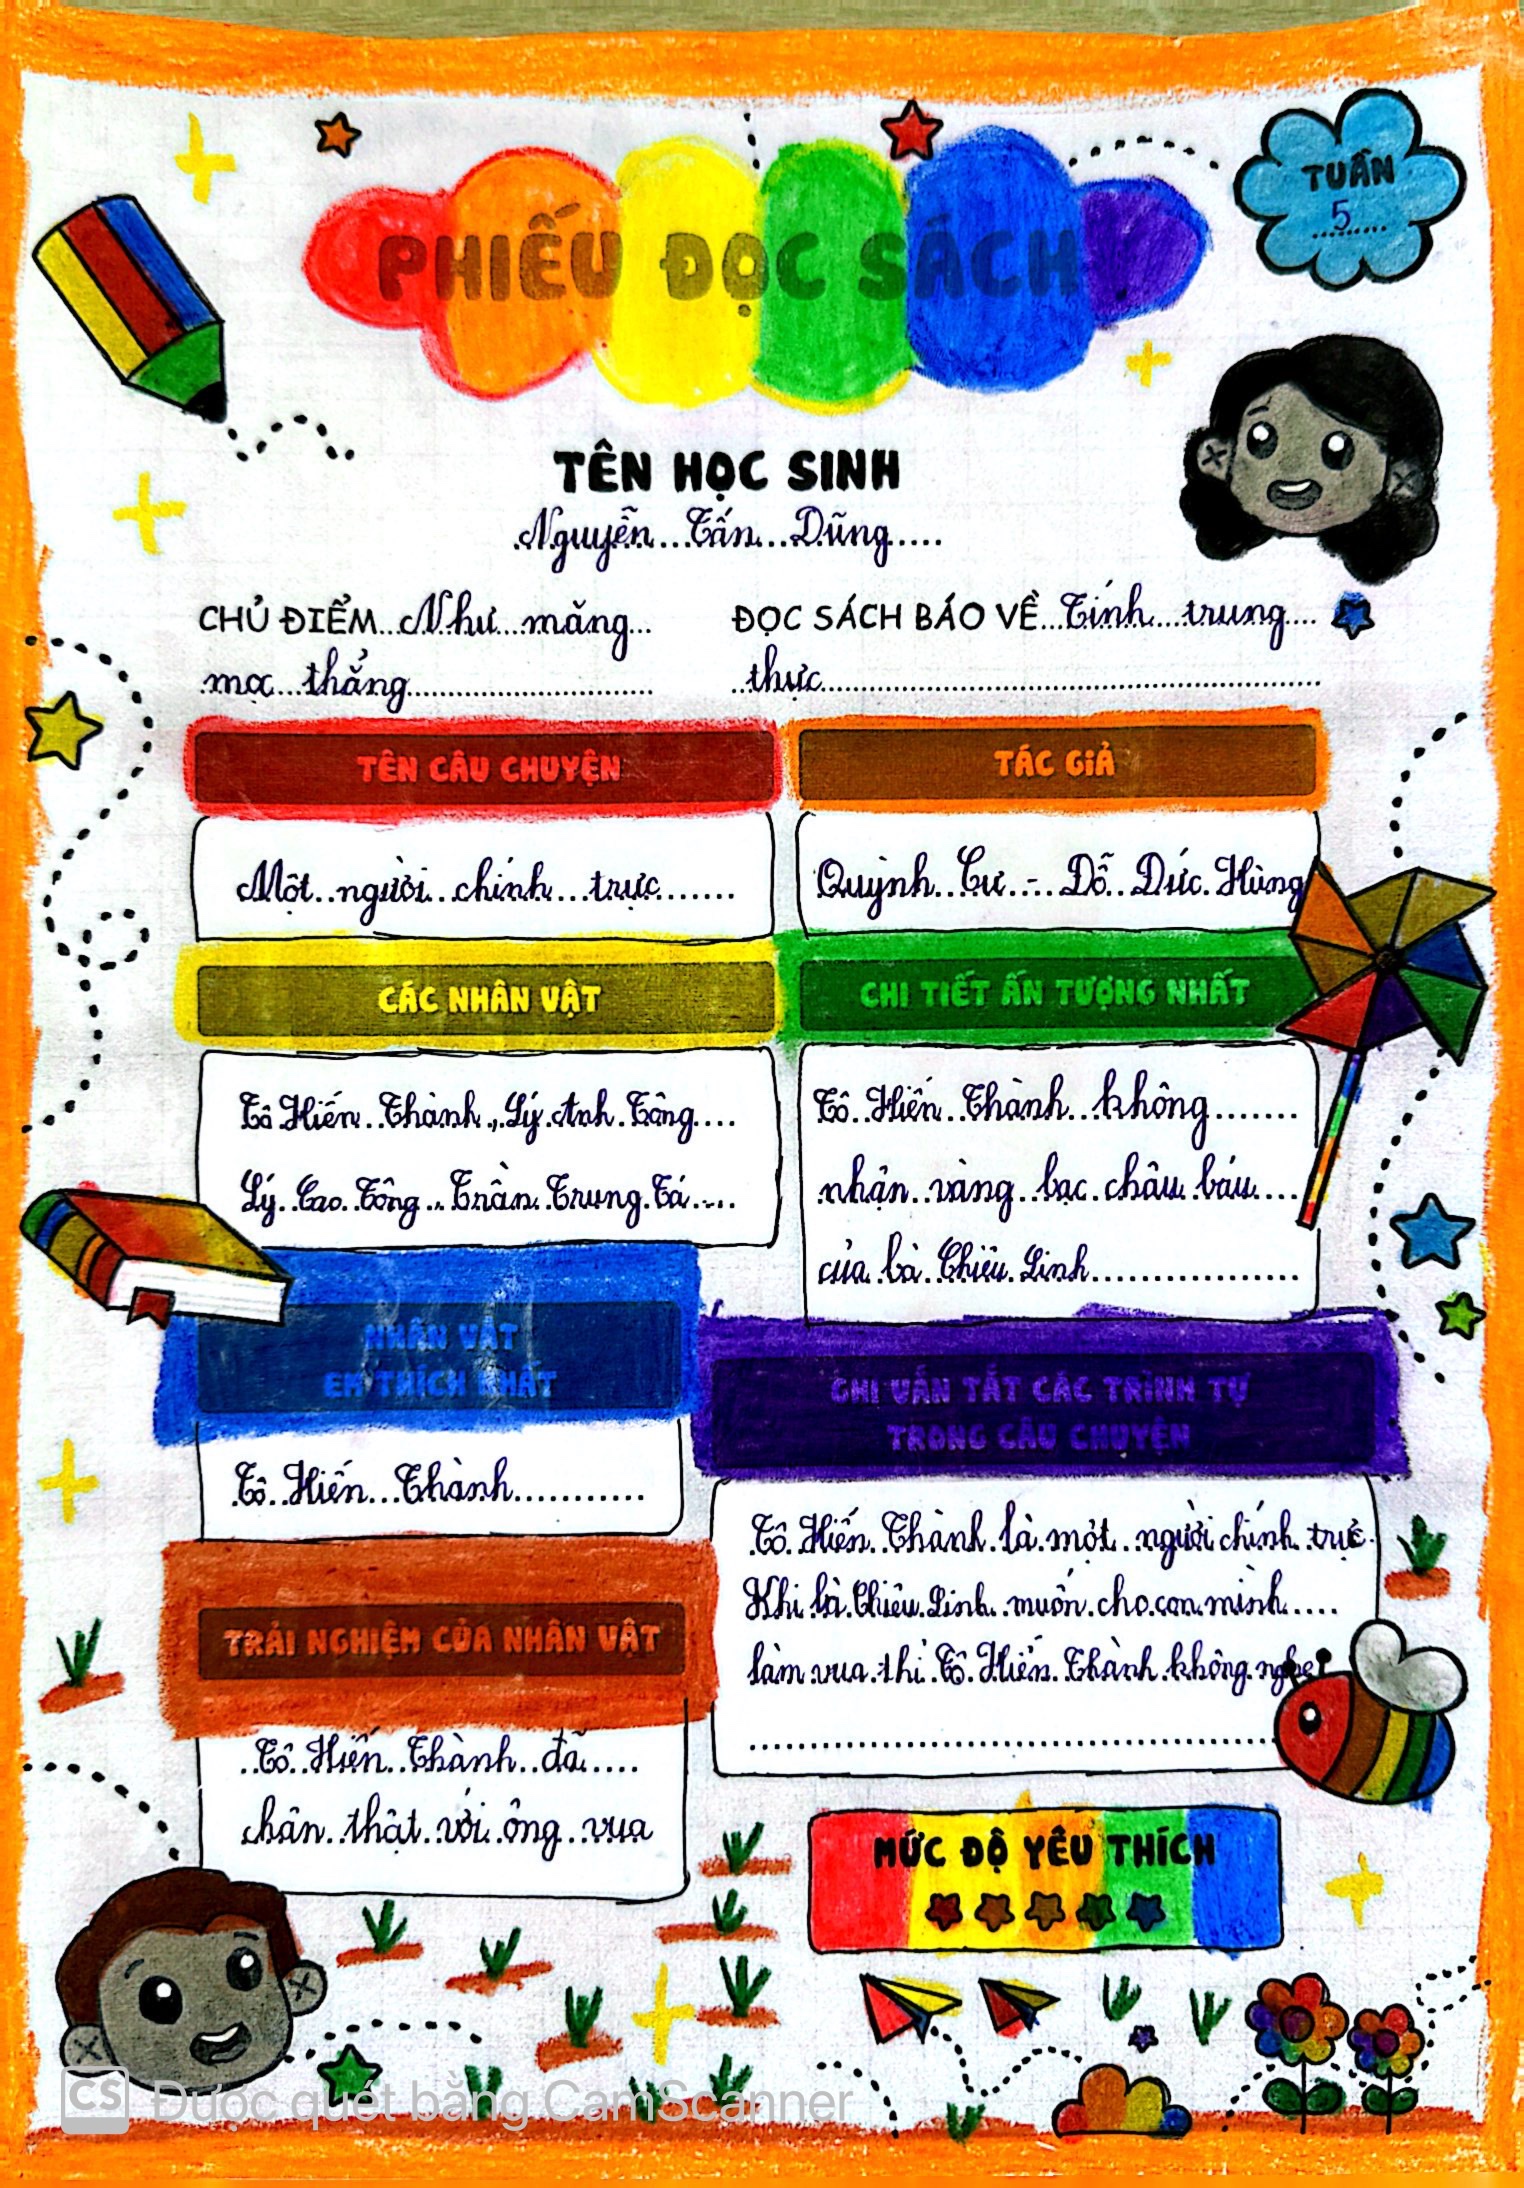 TUẦN
5
PHIẾU ĐỌC SÁCH
TÊN HỌC SINH
Nguyễn Tấn Dũng
CHỦ ĐIỂM Như măng
mọc thẳng
ĐỌC SÁCH BÁO VỀ Tính trung
thực
TÊN CÂU CHUYỆN
Một người chính trực
TÁC GIẢ
Quỳnh Cư - Đỗ Đức Hùng
CÁC NHÂN VẬT
Tô Hiến Thành, Lý Anh Tông
Lý Cao Tông, Trần Trung Tá
CHI TIẾT ẤN TƯỢNG NHẤT
Tô Hiến Thành không
nhận vàng bạc châu báu
của bà Chiêu Linh
NHÂN VẬT
EM THÍCH NHẤT
Tô Hiến Thành
GHI VẮN TẮT CÁC TRÌNH TỰ
TRONG CÂU CHUYỆN
Tô Hiến Thành là một người chính trực
Khi bà Chiêu Linh muốn cho con mình
làm vua thì Tô Hiến Thành không nghe
TRẢI NGHIỆM CỦA NHÂN VẬT
Tô Hiến Thành đã
chân thật với ông vua
MỨC ĐỘ YÊU THÍCH
CS Được quét bằng CamScanner